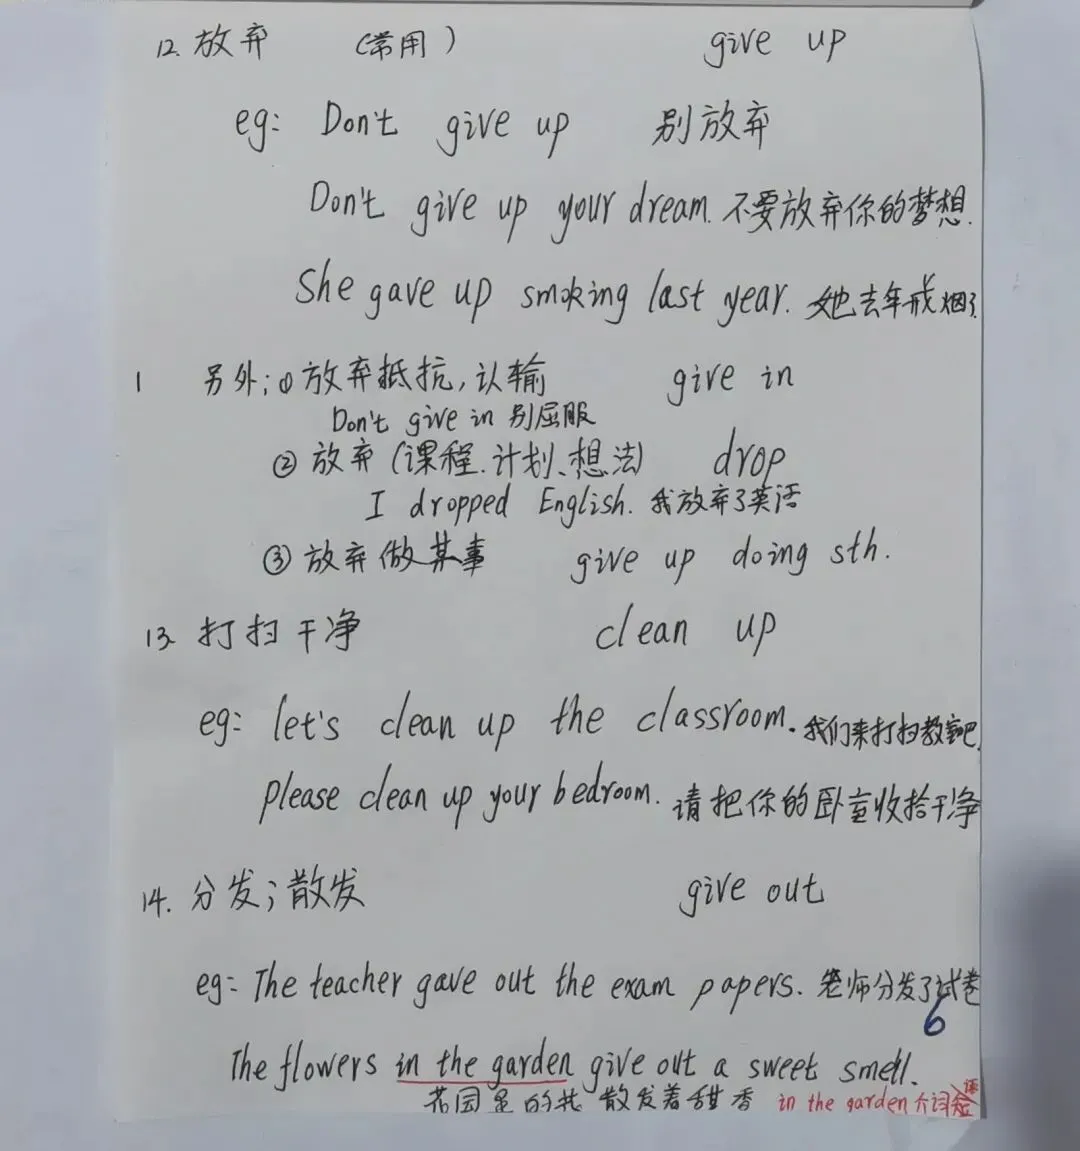 12. 放弃 (常用) give up
eg: Don't give up 别放弃
Don't give up your dream. 不要放弃你的梦想.
She gave up smoking last year. 她去年戒烟了.
1 另外; ① 放弃抵抗, 认输 give in
Don't give in 别屈服
② 放弃 (课程. 计划、想法) drop
I dropped English. 我放弃了英语
③ 放弃做某事 give up doing sth.
13. 打扫干净 clean up
eg: let's clean up the classroom. 我们来打扫教室吧.
please clean up your bedroom. 请把你的卧室收拾干净
14. 分发; 散发 give out
eg: The teacher gave out the exam papers. 老师分发了试卷
6
The flowers in the garden give out a sweet smell.
花园里的花 散发着甜香 in the garden 介词短语